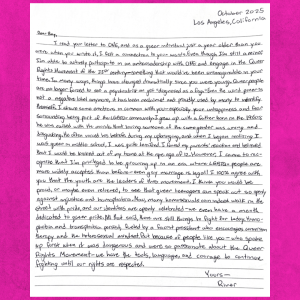 October 2025
Los Angeles, California
Dear Ray,
I read your letter to ONE, and as a year individual just a year older than you
were when you wrote it, I felt a connection to your words. Even though I'm still a
I'm able to actively participate in an internship with ONE and engage in the Queer
Rights Movement of the 21st century—something that would've been unimaginable in your
time. In many ways, things have changed dramatically since you were young. Queer people
are no longer forced to see a psychiatrist or get "diagnosed" as a Fag. Since the word queer is
not a negative label anymore, it has been reclaimed and proudly used by many to identify
themself. I share some emotions in common with you, especially your unhappiness and fear
surrounding being part of the LGBTQ+ community. I grew up with a father born in the 1960s
he was raised with the morals that loving someone of the same gender was wrong and
disgusting. He often would be hostile during my upbringing, and when I began realizing I
was queer in middle school, I was quite terrified. I feared my parents' reaction and believed
that I would be kicked out of my home at the ripe age of 12. However, I came to rec-
ognize that I'm privileged to be growing up in an era where LGBTQ+ people are
more widely accepted than before—even gay marriage is legal! I 100% agree with
you that the youth are the leaders of this movement. I think you would be
proud, or maybe even relieved, to see that queer teenagers can speak out so openly
against injustice and homophobia. Now, many homosexuals can indeed walk in the
street with pride, and our identities are openly celebrated—we even have a month
dedicated to queer pride. All that said, there are still things to fight for today. Homo-
phobia and transphobia persist, fueled by a fascist president who encourages conversion
therapy and the heterosexual mindset. But because of people like you—who spoke
up for us when it was dangerous and were so passionate about the Queer
Rights Movement—we have the tools, language, and courage to continue
fighting until our rights are respected.
Yours—
River